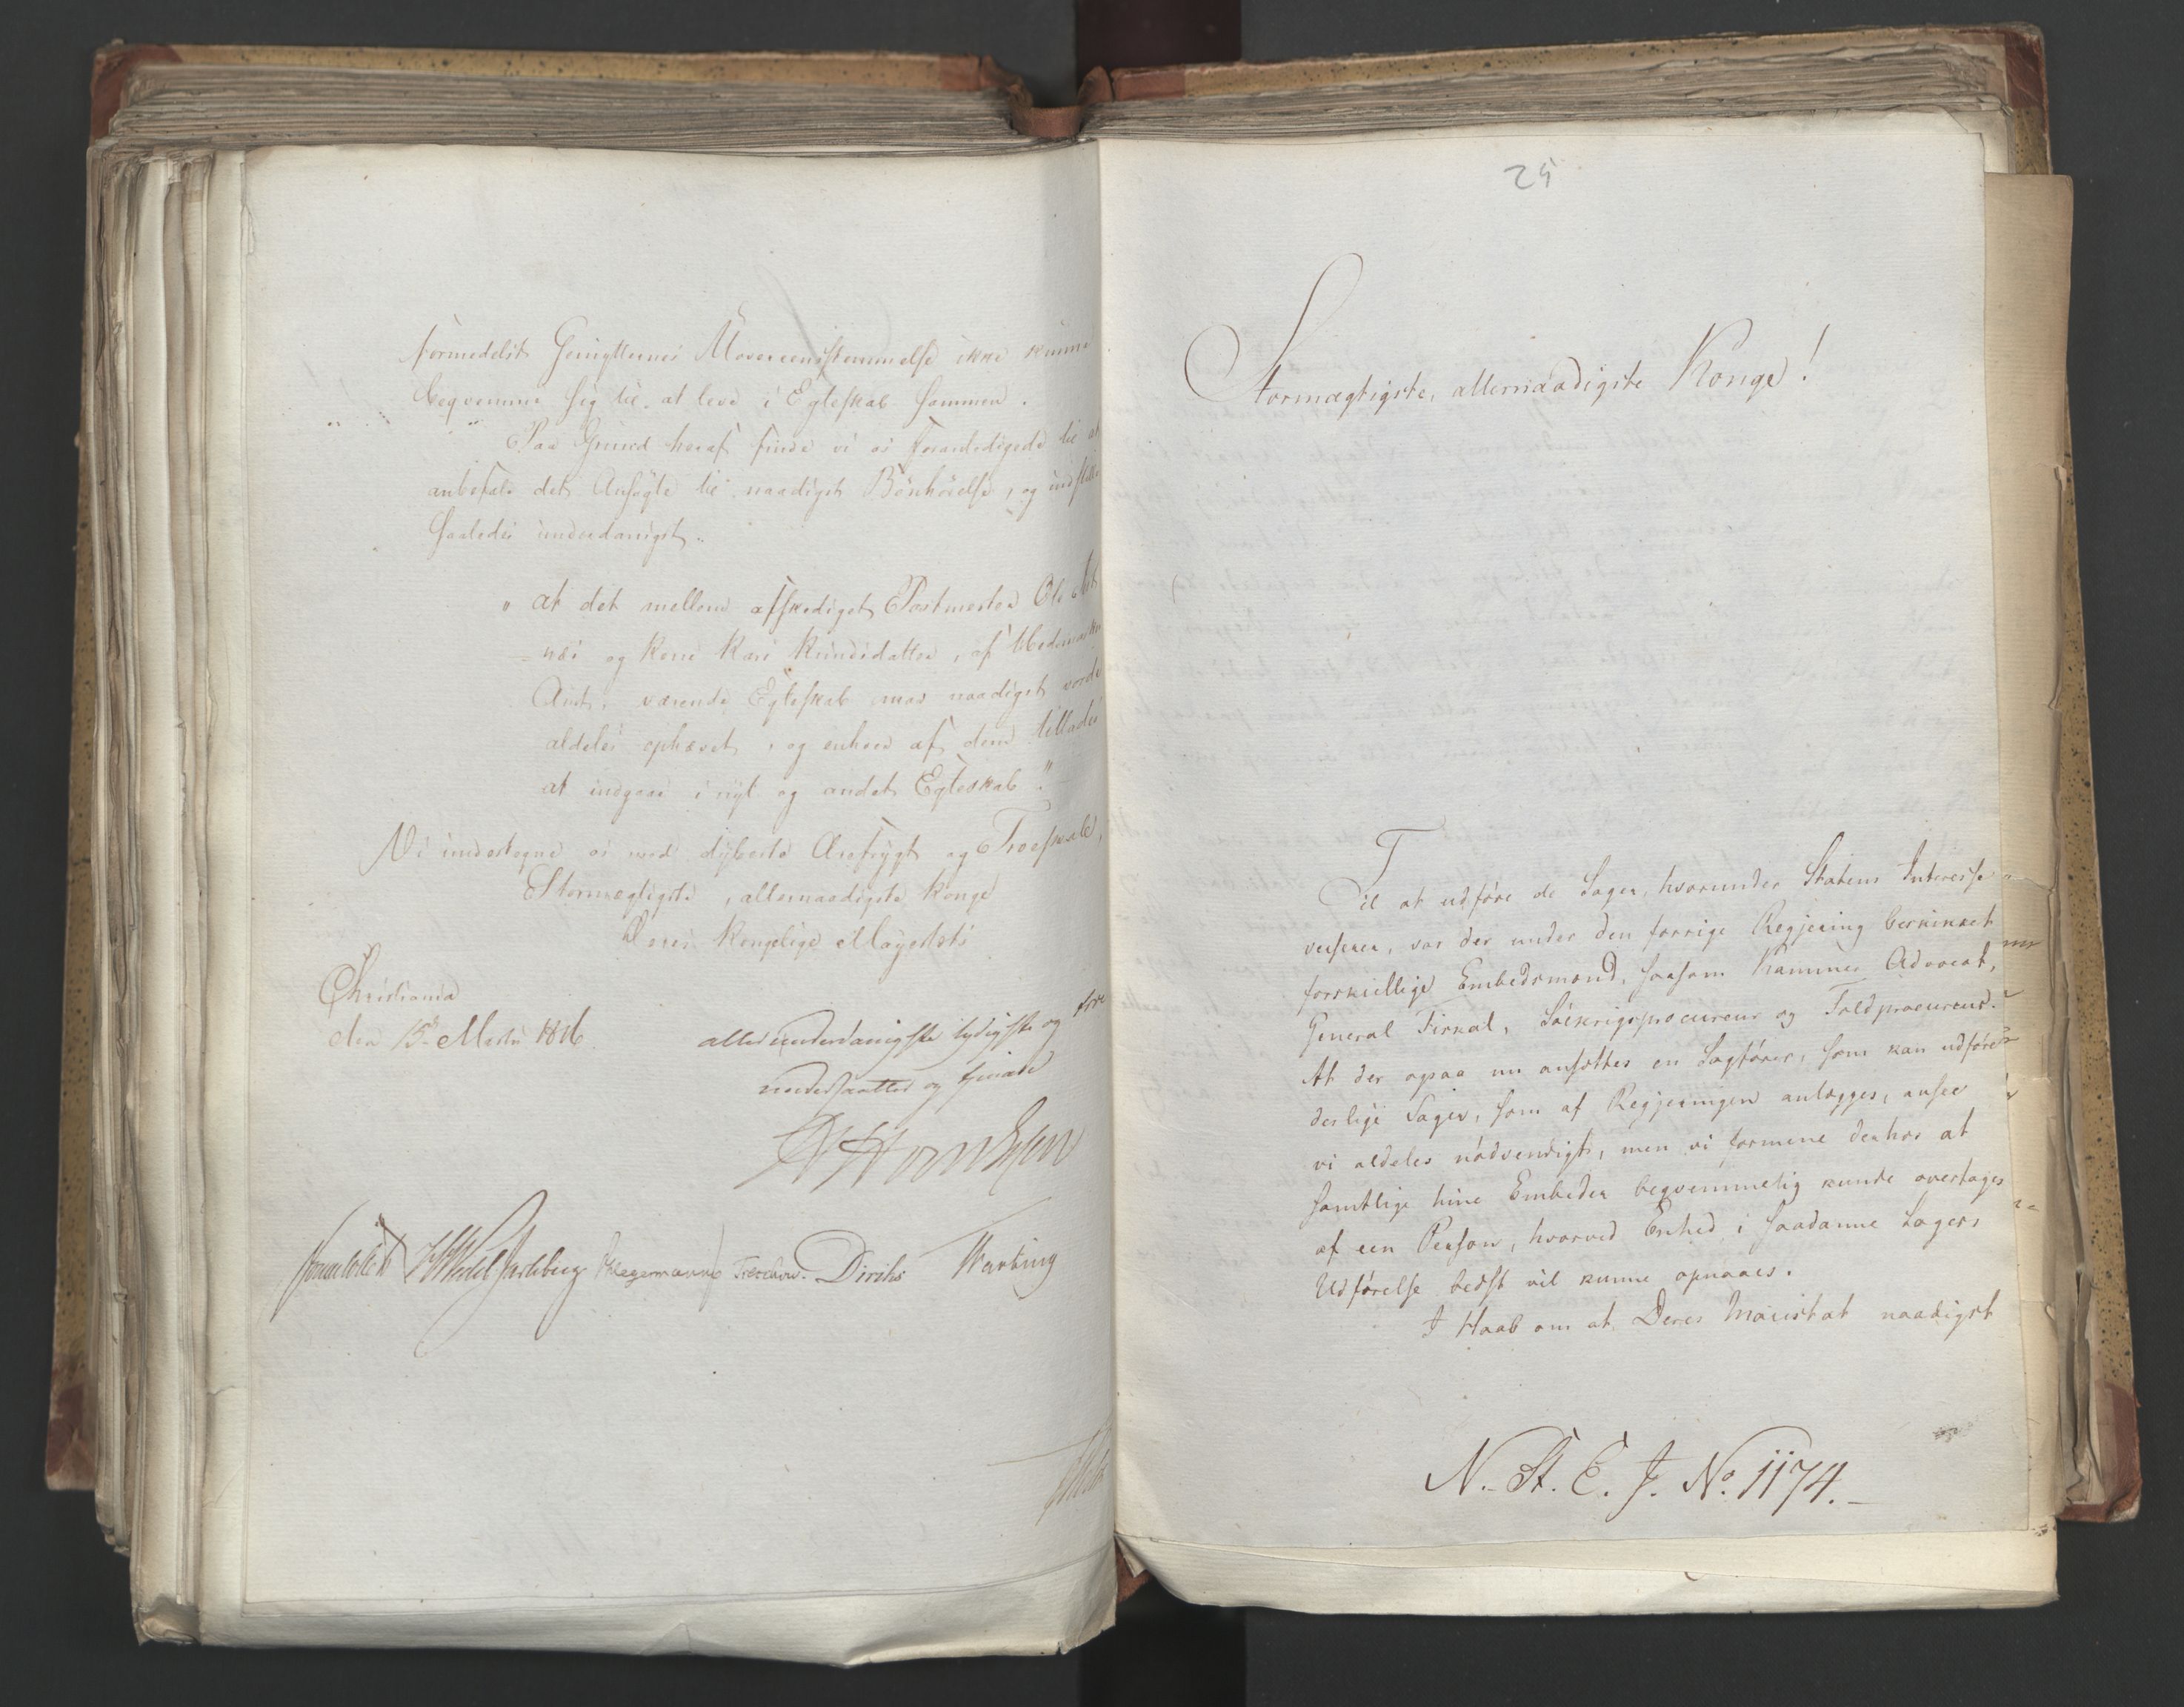 formedelst Gemytternes Uoverеensstemmelse ikke kunne
beqvemme sig til at leve i Egteskab sammen.
Paa Grund heraf finde vi os foranledigede til at
anbefale det Ansøgte til naadigst Bönhörelse, og indstille
saaledes underdanigst.
" at det mellem afskediget Postmester Ole
og Kone Kari Knudsdatter, af Hedemarkens
Amt, værende Egteskab maa naadigst vorde
aldeles ophævet, og enhver af dem tillades
at indgaae i nyt og andet Egteskab".
Vi undertegne os med dybeste Ærefrygt og Troeskab,
Stormægtigste, allernaadigste Konge
Deres Kongelige Mayestæts
Christiania
den 15de Martii 1816.
allerunderdanigste lydigste og troe
undersaatter og tjenere
Sommerhielm HWedel Jarlsberg Hegermann Treschow. Diriks Motzfeldt
25
Stormægtigste, allernaadigste Konge!
Til at udföre de Sager, hvorunder Statens Interesse
verserer, var der under den forrige Regjering beskikket
forskiellige Embedsmænd, saasom Kammer Advocat,
General Fiskal, Soekrigsprocureur og Toldprocureur.
At der ogsaa nu ansættes en Sagförer, som kan udföre
deslige Sager, som af Regjeringen anlægges, ansee
vi aldeles nödvendigt, men vi formene derhos at
samtlige hine Embeder beqvemmelig kunde overtages
af een Person, hvorved Enhed i saadanne Sagers
Udförelse bedst vil kunne opnaaes.
I Haab om at Deres Maiestæt naadigst
N. St. E. J. No. 1174.